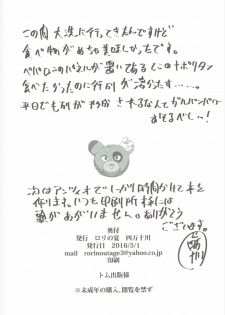 この間大洗に行ってきたんですけど
食べ物がめちゃ美味しかったです。
ペパロニのパネルが置いてあるとこのナポリタン
食べたかったのに行列が凄かた……。
平日でも列が形成されるなんてガルパンパワー
おそるべし…!
次はアンツィオでしっかり時間かけて本を
作ります。いつも印刷所様には
頭があがりません。ありがとう
ございます。
四万十川
奥付
発行　ロリの宴　四万十川
発行日　2016/5/1
mail　rorinoutage3@yahoo.co.jp
印刷
トム出版様
※未成年の購入、閲覧を禁ず